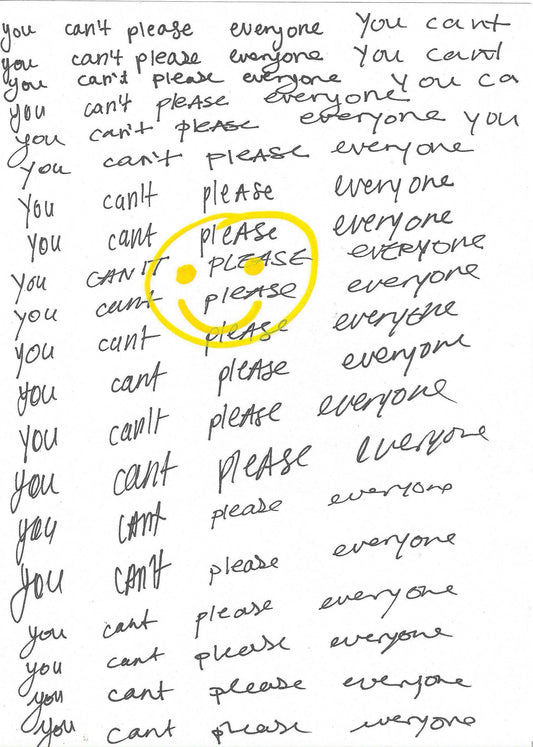 you can't please everyone You cant
you can't please everyone You cant
you can't please everyone You ca
you can't pleAse everyone
you can't pleAse everyone you
you can't pleAse everyone
you can't pleAse everyone
you cant pleAse everyone
you CAN'T PLEASE EVERYONE
you cant pleAse everyone
you cant pleAse everyone
you cant pleAse everyone
you can't pleAse everyone
you cant pleAse everyone
you CANT please everyone
you CAN't please everyone
you cant please everyone
you cant please everyone
you cant please everyone
you cant please everyone